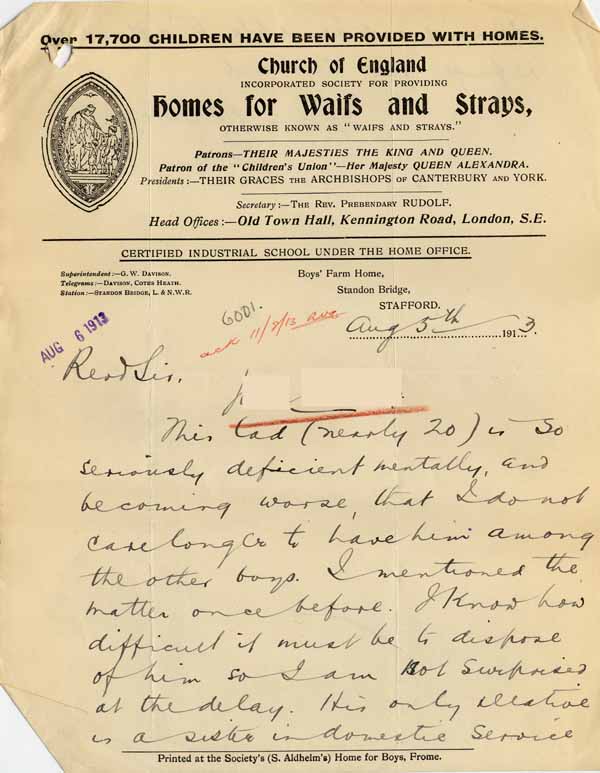 Over 17,700 CHILDREN HAVE BEEN PROVIDED WITH HOMES.
Church of England
INCORPORATED SOCIETY FOR PROVIDING
Homes for Waifs and Strays,
OTHERWISE KNOWN AS "WAIFS AND STRAYS."
Patrons—THEIR MAJESTIES THE KING AND QUEEN.
Patron of the "Children's Union"—Her Majesty QUEEN ALEXANDRA.
Presidents:—THEIR GRACES THE ARCHBISHOPS OF CANTERBURY AND YORK.
Secretary:—THE REV. PREBENDARY RUDOLF.
Head Offices:—Old Town Hall, Kennington Road, London, S.E.
CERTIFIED INDUSTRIAL SCHOOL UNDER THE HOME OFFICE.
Superintendent:—G. W. DAVISON.
Telegrams:—DAVISON, COTES HEATH.
Station:—STANDON BRIDGE, L. & N.W.R.
Boys' Farm Home,
Standon Bridge,
STAFFORD.
AUG 6 1913
6001.
ack 11/8/13
Aug 5th 1913.
Revd Sir.
This lad (nearly 20) is so
seriously deficient mentally, and
becoming worse, that I do not
care longer to have him among
the other boys. I mentioned the
matter once before. I know how
difficult it must be to dispose
of him so I am not surprised
at the delay. His only relative
is a sister in domestic service
Printed at the Society's (S. Aldhelm's) Home for Boys, Frome.